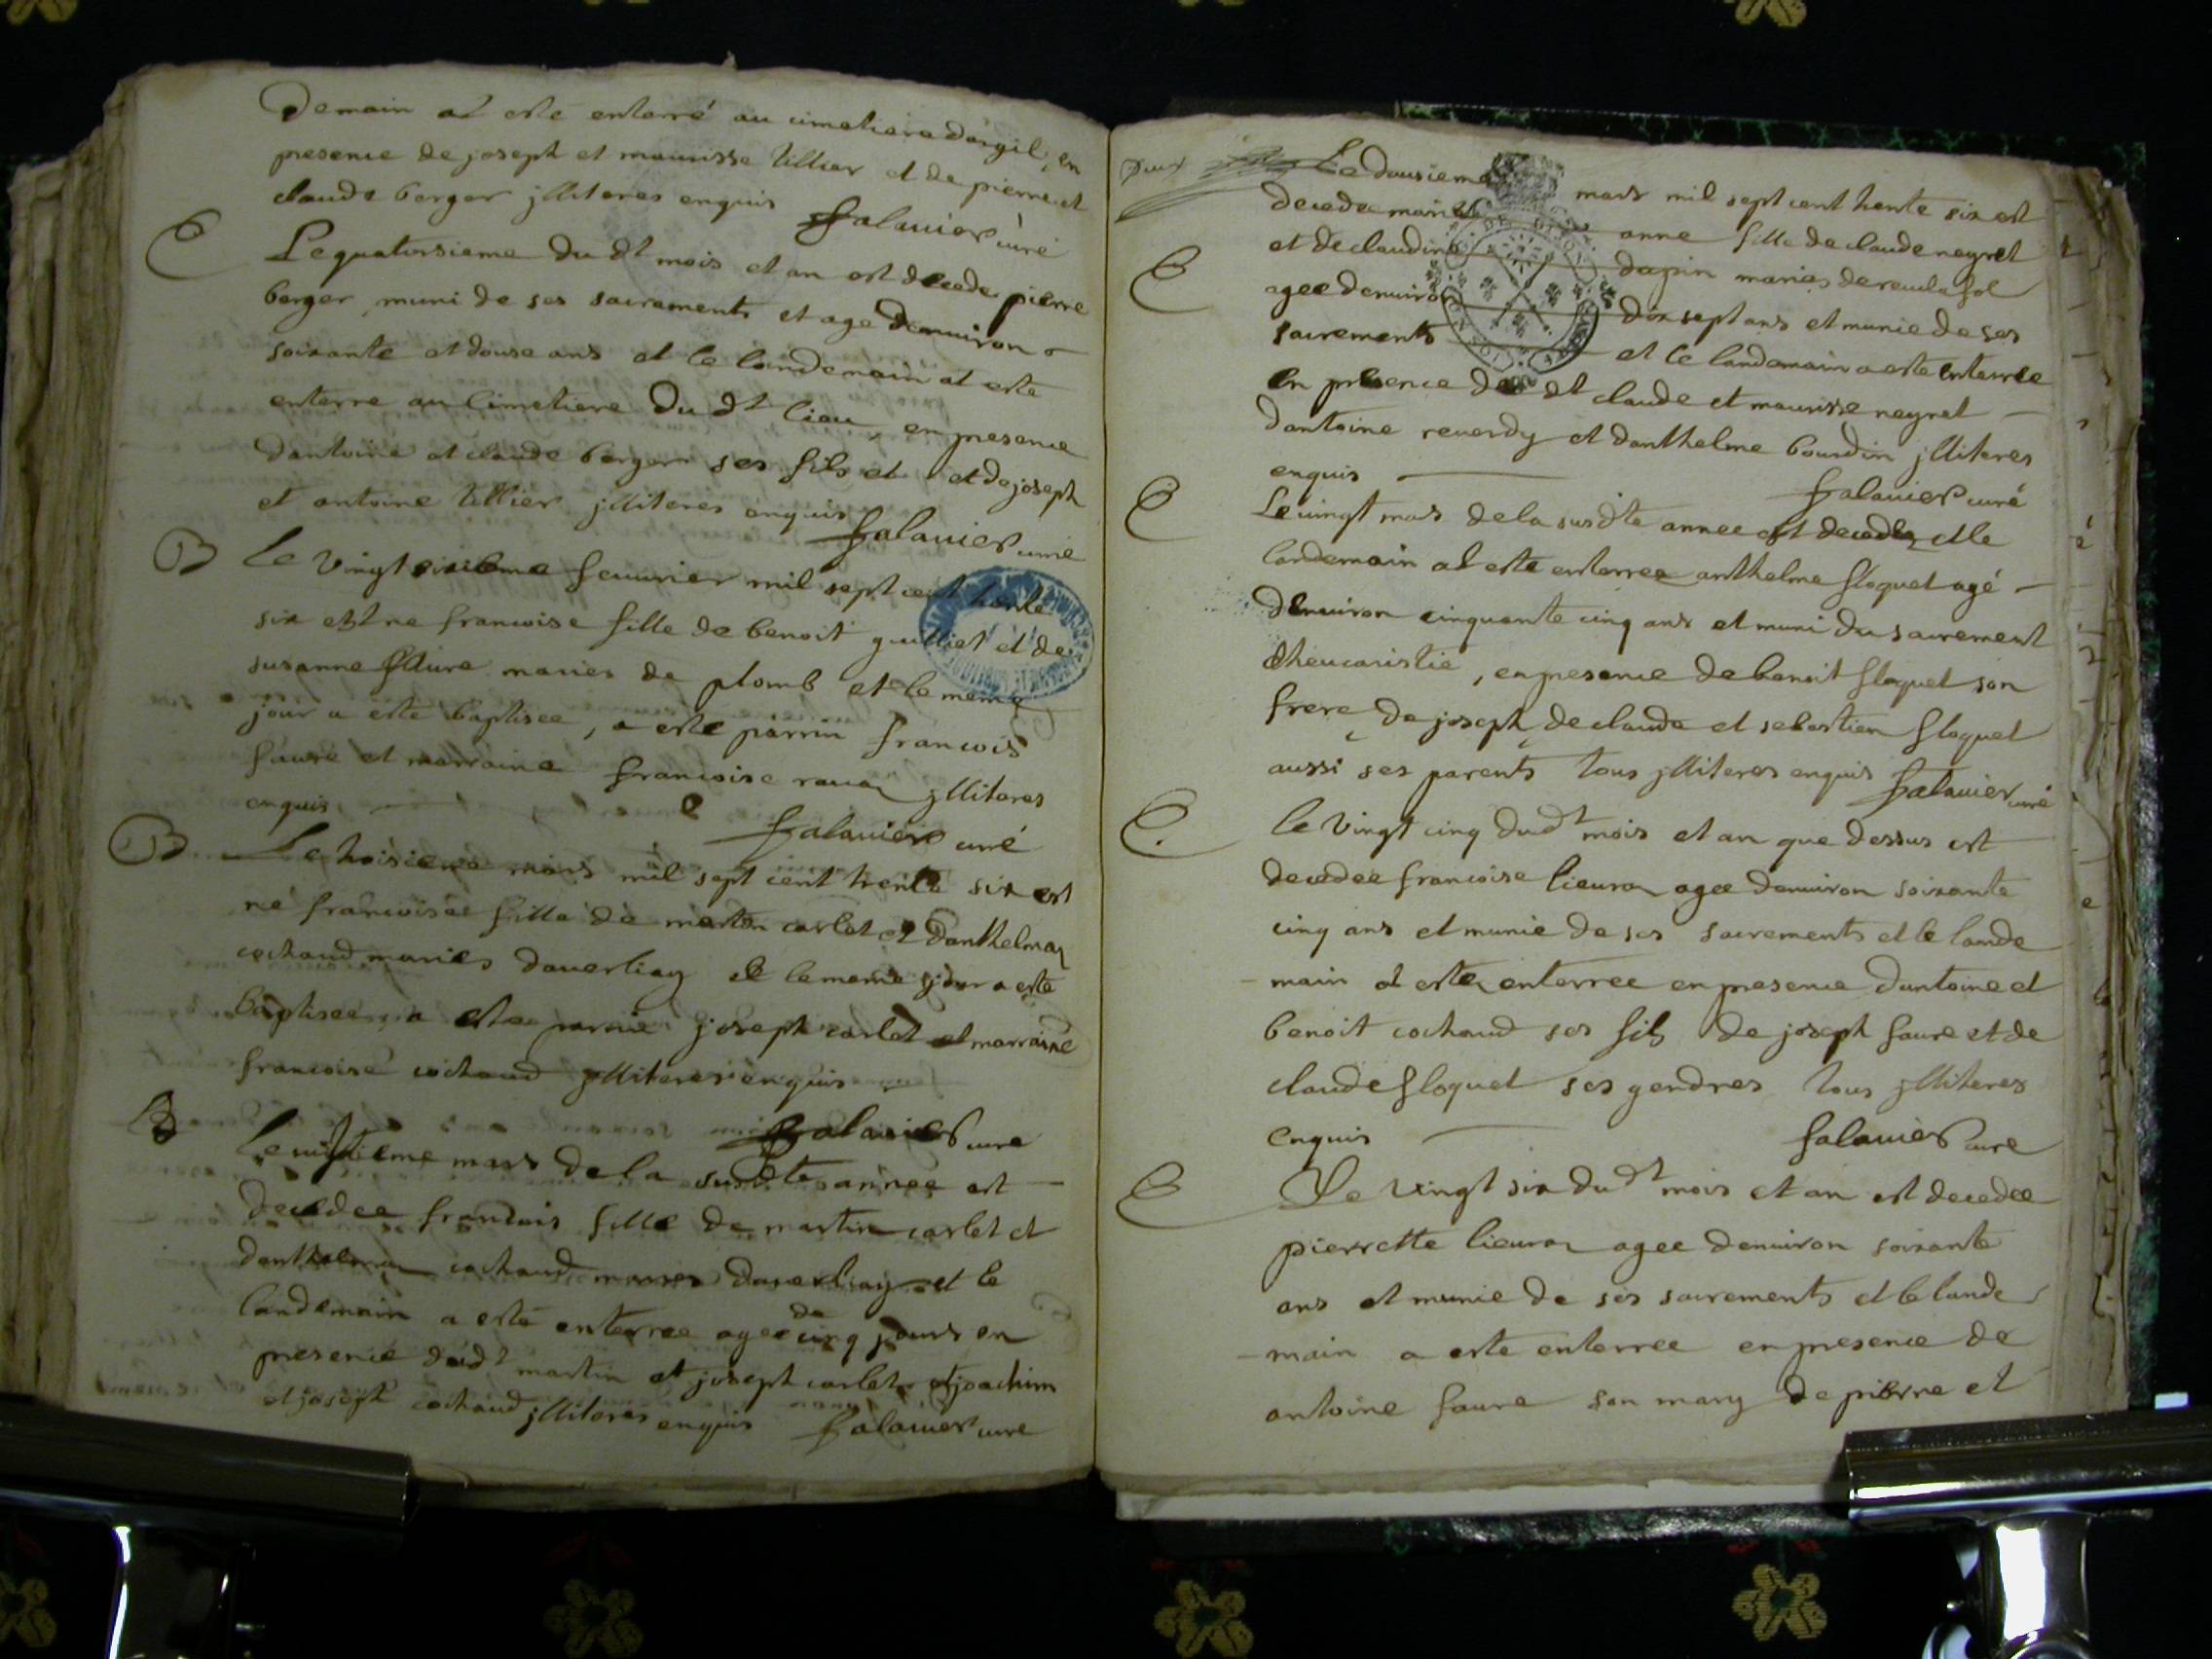 Demain at esté enterré au cimetiere dargil, en
presence de joseph et maurisse tillier et de pierre et
claude berger jlliteres enquis falavier curé
E Le quatorsieme du dt mois et an est decede pierre
berger, muni de ses sacrements et age denuiron
soixante et douse ans et le landemain at esté
enterre au cimetiere du dt lieu, en presence
dantoine et claude berger ses fils et et de joseph
et antoine tillier jlliteres enquis falavier curé
B Le vingt sixieme feuurier mil sept cent trente
six est ne francoise fille de benoit guilliet et de
susanne faure maries de plomb et le meme
jour a esté baptisee, a esté parrin francois
faure et marraine francoise jlliteres
enquis falavier curé
B Le troisieme mars mil sept cent trente six est
né francoise fille de martin carlot et danthelma
cochaud maries daverliay et le meme jour a esté
baptisee, a este parrin joseph carlot et marraine
francoise cochaud jlliteres enquis
falavier curé
Le mars de la susdte année est
decedee francois fille de martin carlot et
danthelma cochaud maries daverliay et le
landemain a esté enterree agee de cinq jours en
presence dudt martin et joseph carlot et joachim
et joseph cochaud jlliteres enquis falavier curé
Le dousieme mars mil sept cent trente six est
decedee marie anne fille de claude neyret
E et de claudine dapin maries de
agee denuiron dix sept ans et munie de ses
sacrements et le landemain a este enterree
en presence du dt claude et maurisse neyret
dantoine reverdy et danthelme bourdin jlliteres
enquis falavier curé
E Le vingt mars de la susdte annee est decede et le
landemain at esté enterree anthelme floquet agé
denuiron cinquante cinq ans et muni du sacrement
dheucaristie, en presence de benoit floquet son
frere de joseph de claude et sebastien floquet
aussi ses parents tous jlliteres enquis falavier curé
E. le vingt cinq dudt mois et an que dessus est
decedee francoise lieuron agee denuiron soixante
cinq ans et munie de ses sacrements et le lande
- main at esté enterree en presence dantoine et
benoit cochaud ses fils de joseph faure et de
claude floquet ses gendres tous jlliteres
enquis falavier cure
E Le vingt six dudt mois et an est decedee
pierrette lieuron agee denuiron soixante
ans et munie de ses sacrements et le lande
- main a esté enterree en presence de
antoine faure son mary de pierre et